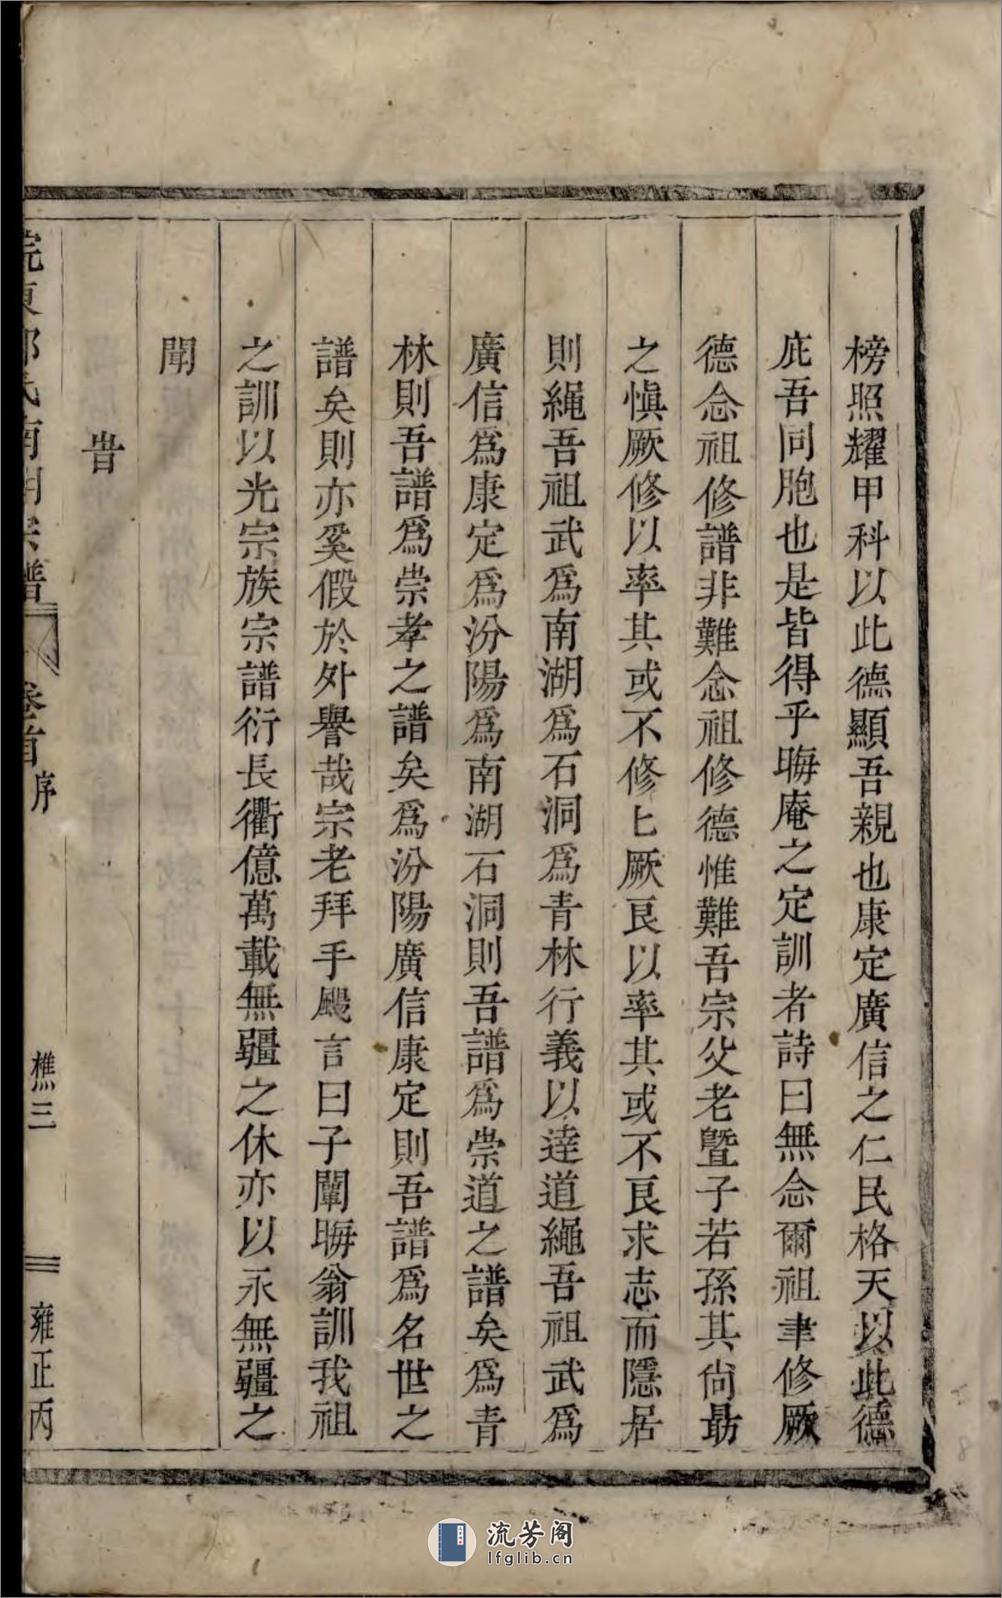 榜照耀甲科以此德顯吾親也康定廣信之仁民格天以此德
庇吾同胞也是皆得乎晦庵之定訓者詩曰無念爾祖聿修厥
德念祖修譜非難念祖修德惟難吾宗父老曁子若孫其尙勗
之愼厥修以率其或不修上厥良以率其或不良求志而隱居
則繩吾祖武爲南湖爲石洞爲青林行義以達道繩吾祖武爲
廣信爲康定爲汾陽爲南湖石洞則吾譜爲崇道之譜矣爲青
林則吾譜爲崇孝之譜矣爲汾陽廣信康定則吾譜爲名世之
譜矣則亦奚假於外譽哉宗老拜手颺言曰子闡晦翁訓我祖
之訓以光宗族宗譜衍長衢億萬載無疆之休亦以永無疆之
聞
旹
東 氏南湖宗譜
卷首
序
樵三
雍正丙
8
流芳阁
lfglib.cn